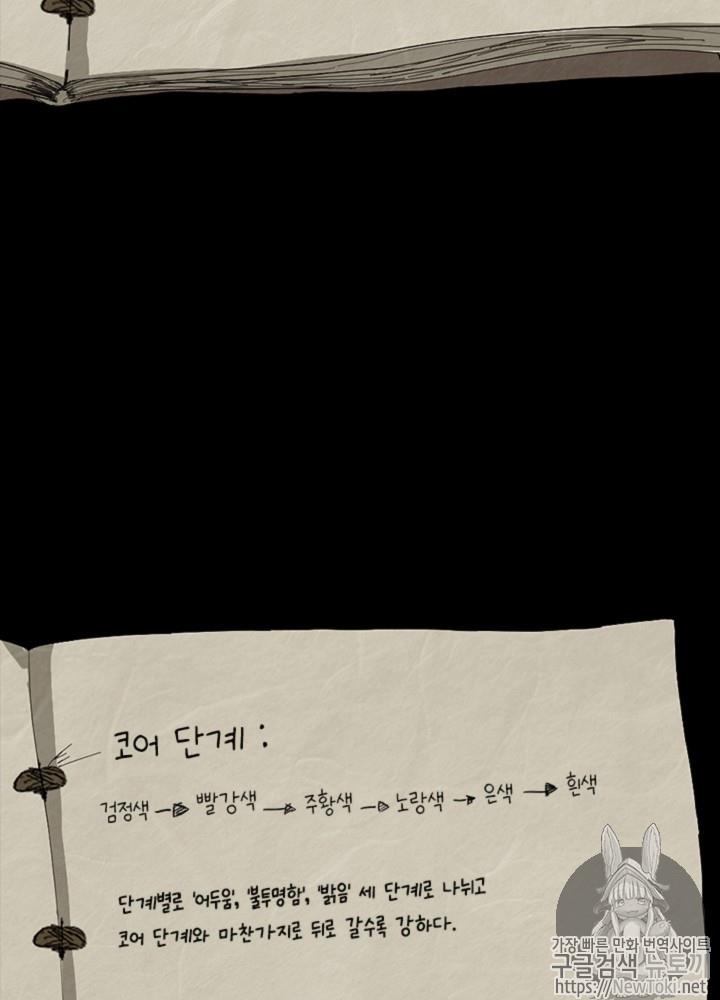 코어 단계 :
검정색 → 빨강색 → 주황색 → 노랑색 → 은색 → 흰색
단계별로 '어두움', '불투명함', '밝음' 세 단계로 나뉘고
코어 단계와 마찬가지로 뒤로 갈수록 강하다.
가장 빠른 만화 번역사이트
구글검색 뉴토끼
https://NewToki.net